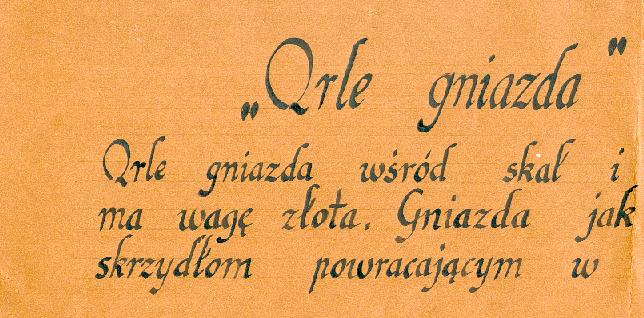 „Orle gniazda”
Orle gniazda wśród skał i
ma wagę złota. Gniazda jak
skrzydłom powracającym w